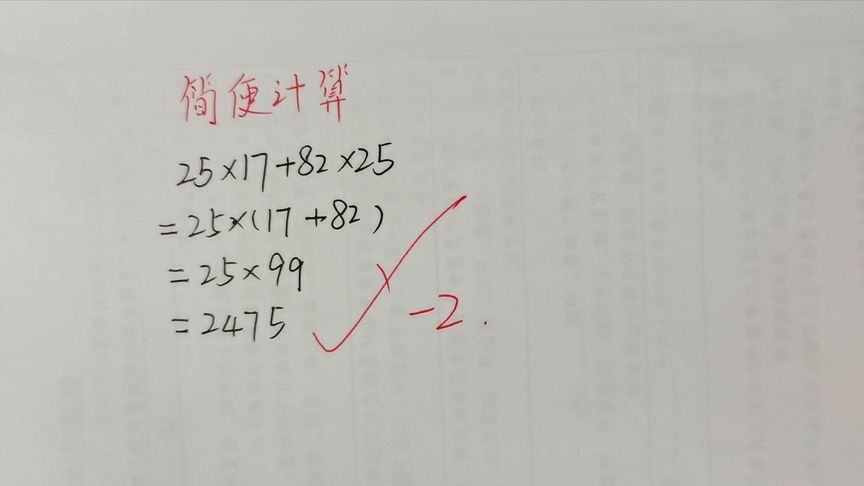 简便计算
25×17+82×25
=25×(17+82)
=25×99
=2475
-2.